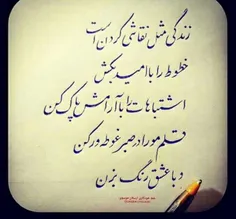 زندگی مثل نقاشی کردن است
خطوط را با امید بکش
اشتباهات را با آرامش پاک کن
قلم مو را در صبر غوطه ور کن
و با عشق رنگ بزن